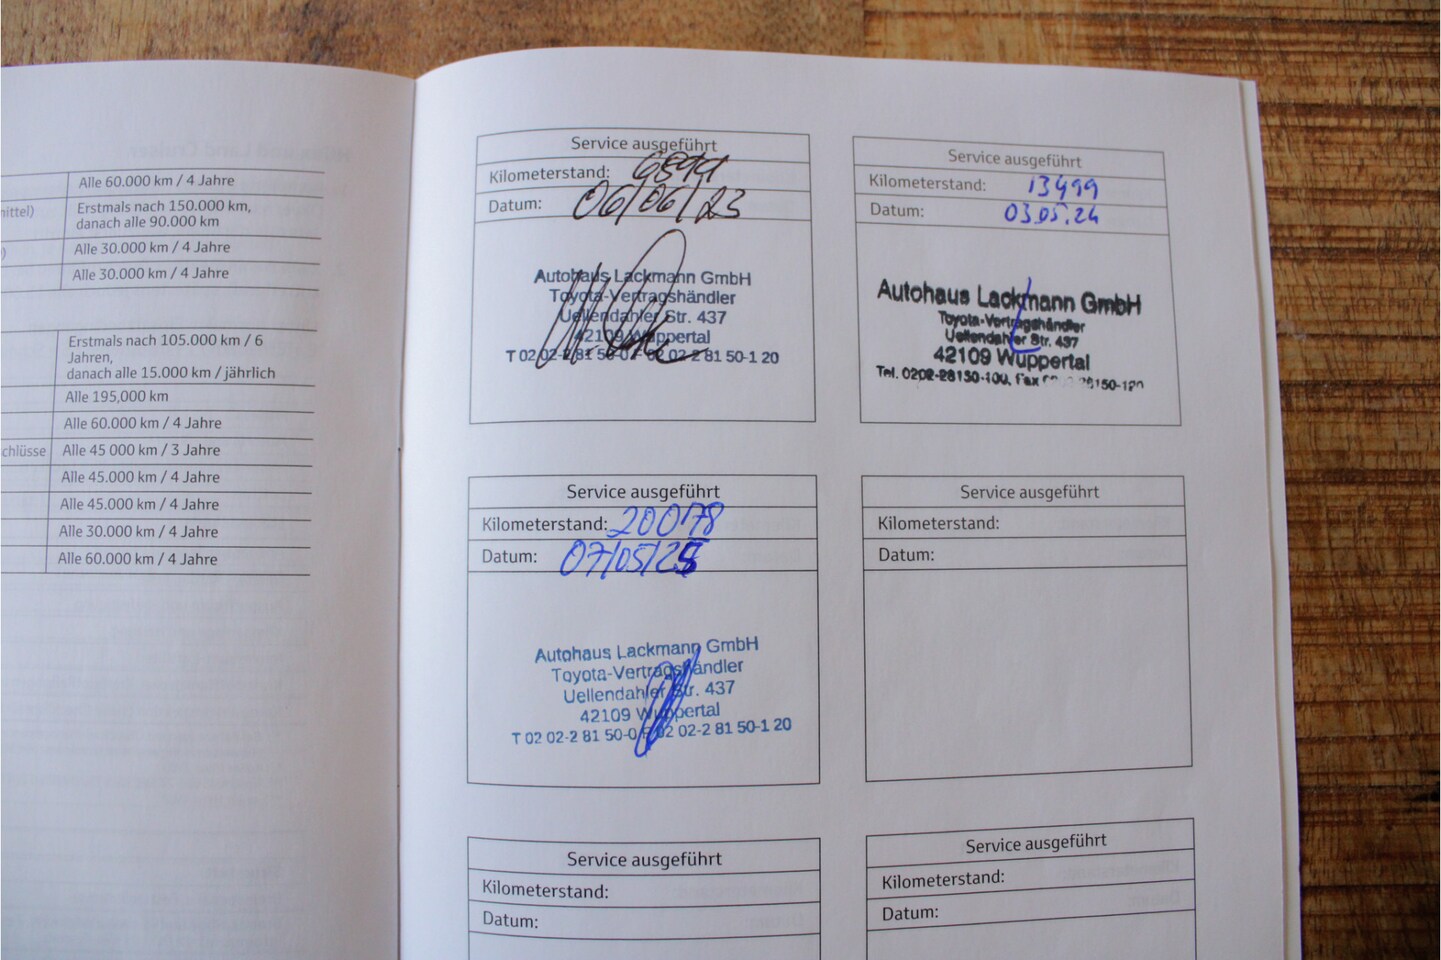 Alle 60.000 km / 4 Jahre
mittel)
Erstmals nach 150.000 km,
danach alle 90.000 km
)
Alle 30.000 km / 4 Jahre
Alle 30.000 km / 4 Jahre
Erstmals nach 105.000 km / 6
Jahren,
danach alle 15.000 km / jährlich
Alle 195,000 km
Alle 60.000 km / 4 Jahre
chlüsse Alle 45 000 km / 3 Jahre
Alle 45.000 km / 4 Jahre
Alle 45.000 km / 4 Jahre
Alle 30.000 km / 4 Jahre
Alle 60.000 km / 4 Jahre
Service ausgeführt
Kilometerstand:
Datum: 06/06/23
Autohaus Lackmann GmbH
Toyota-Vertragshändler
Uellendahler Str. 437
42109 Wuppertal
T 02 02-2 81 50-0 F 02 02-2 81 50-1 20
Service ausgeführt
Kilometerstand: 13499
Datum: 03.05.24
Autohaus Lackmann GmbH
Toyota-Vertragshändler
Uellendahler Str. 437
42109 Wuppertal
Tel. 0202-28150-100, Fax 28150-120
Service ausgeführt
Kilometerstand: 20078
Datum: 07/05/25
Autohaus Lackmann GmbH
Toyota-Vertragshändler
Uellendahler Str. 437
42109 Wuppertal
T 02 02-2 81 50-0 F 02 02-2 81 50-1 20
Service ausgeführt
Kilometerstand:
Datum:
Service ausgeführt
Kilometerstand:
Datum:
Service ausgeführt
Kilometerstand:
Datum: